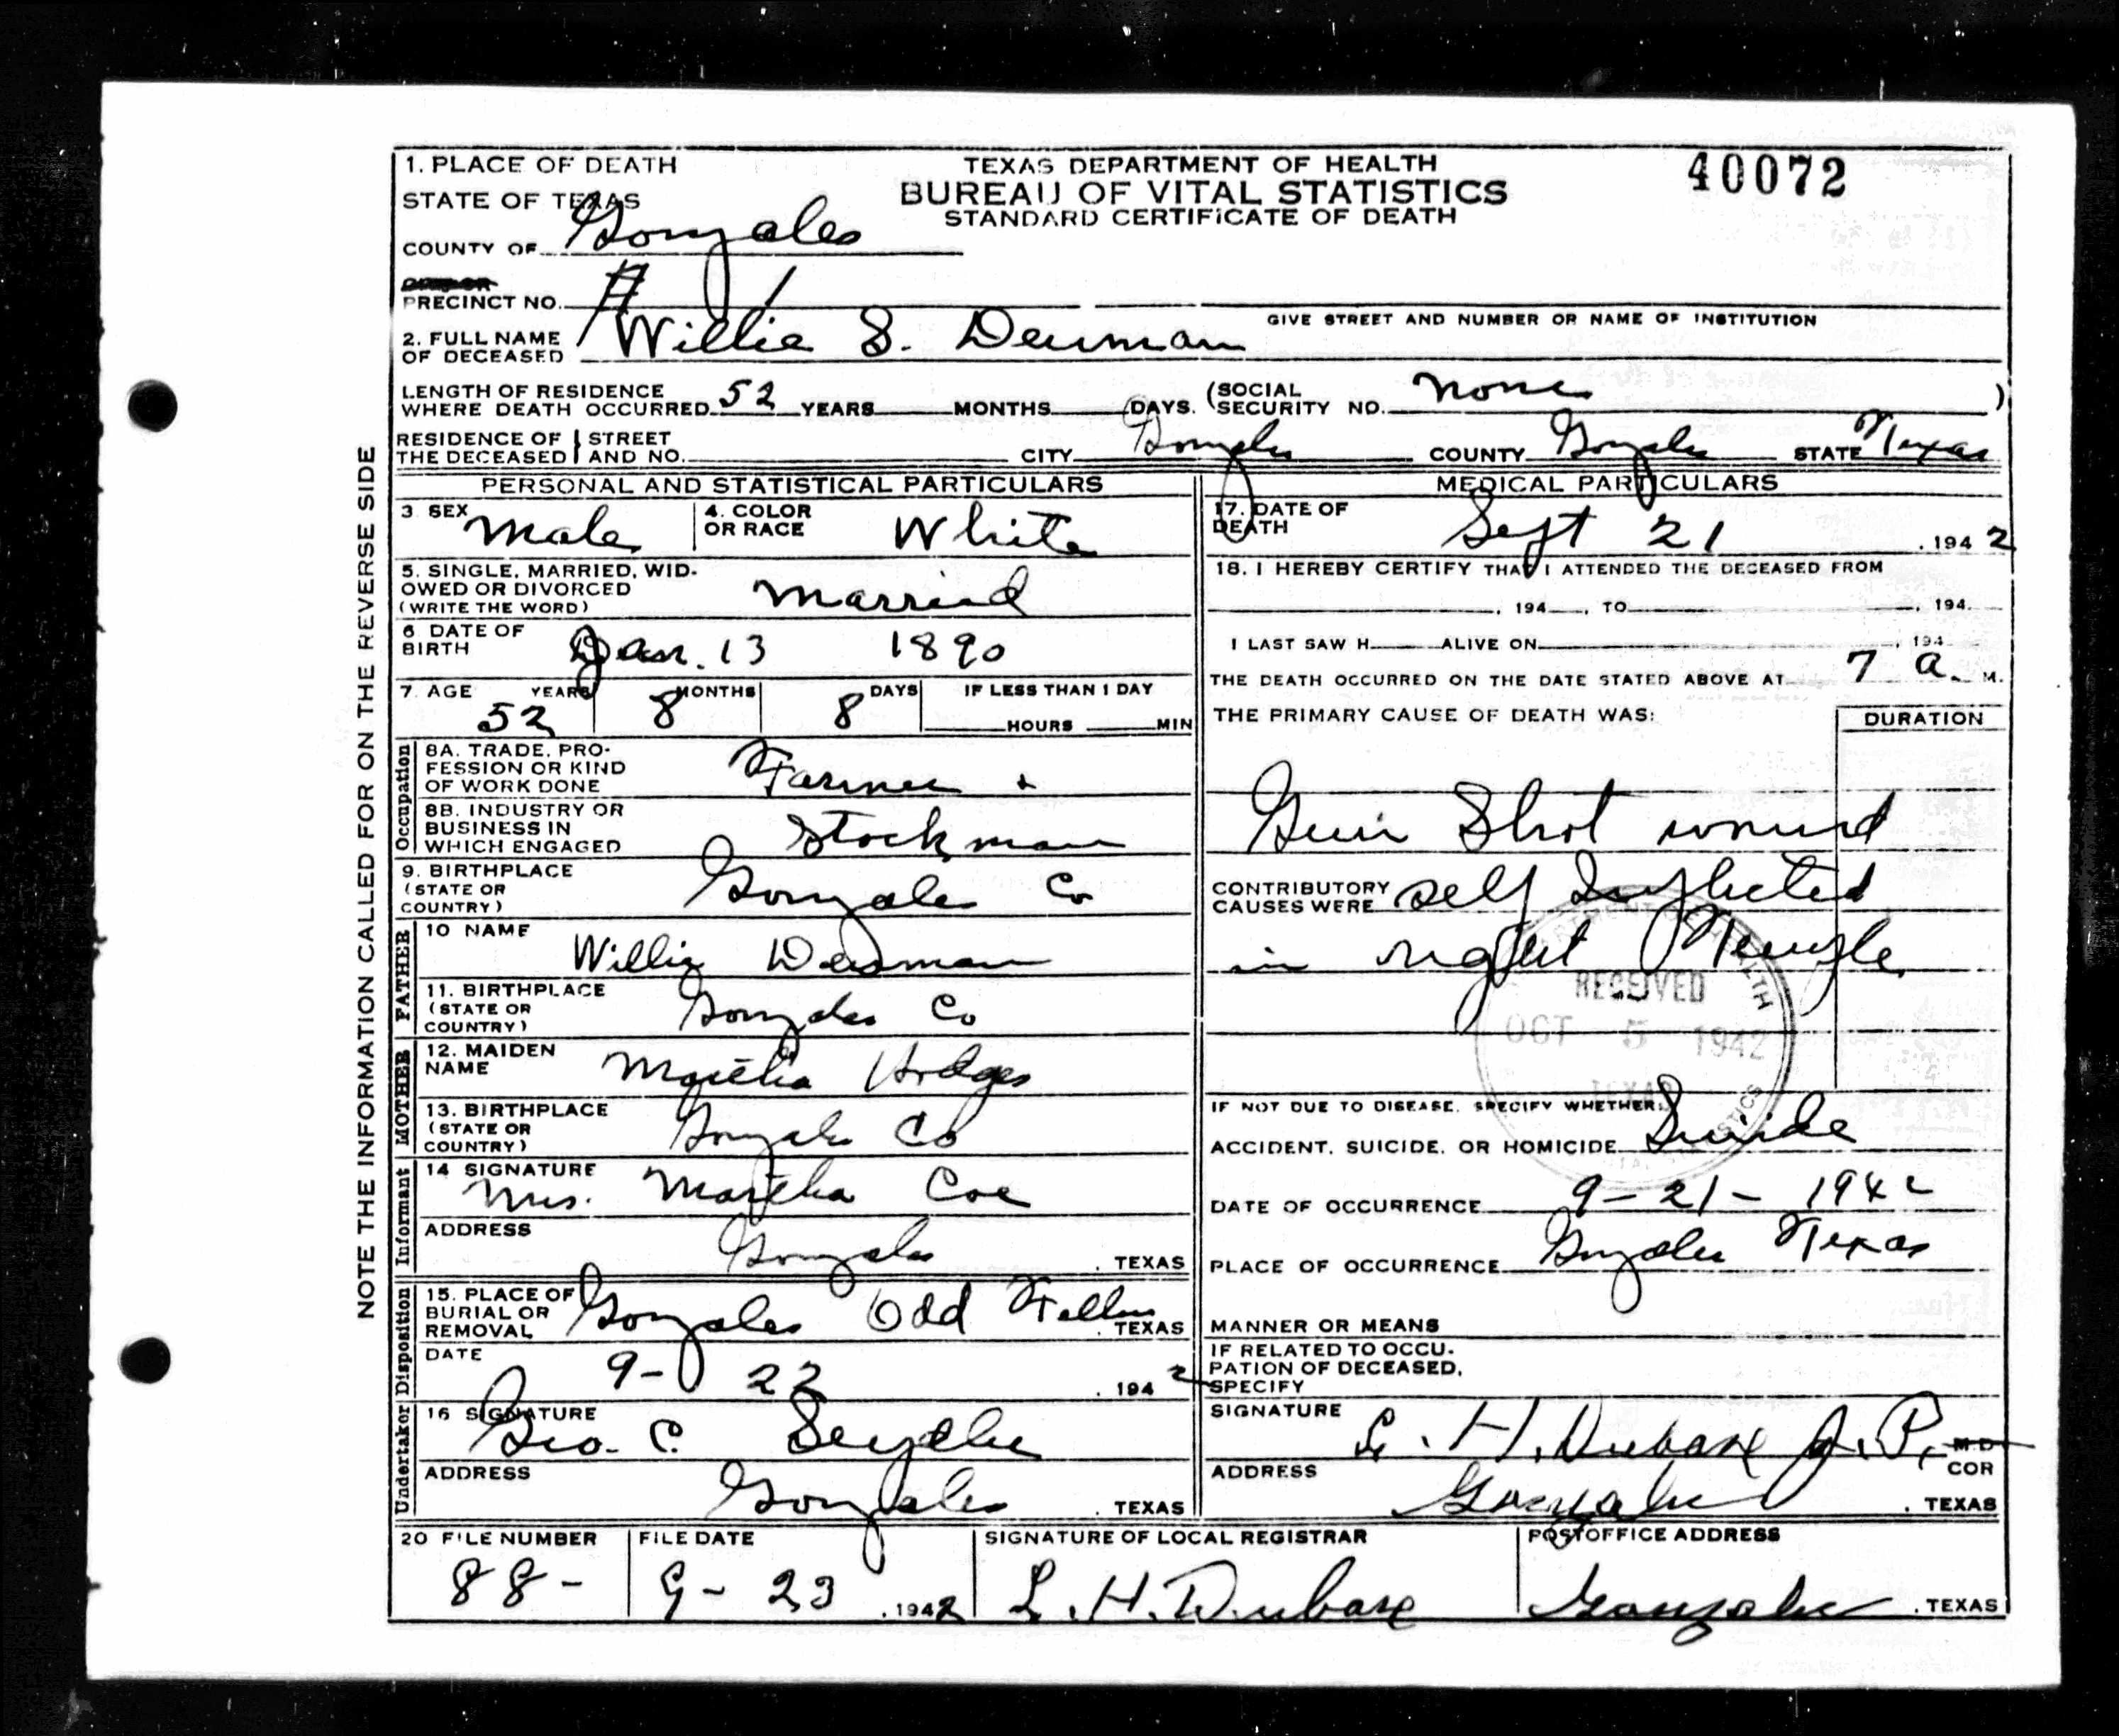 1. PLACE OF DEATH
TEXAS DEPARTMENT OF HEALTH
40072
STATE OF TEXAS
BUREAU OF VITAL STATISTICS
STANDARD CERTIFICATE OF DEATH
COUNTY OF Gonzales
PRECINCT NO. # 1
GIVE STREET AND NUMBER OR NAME OF INSTITUTION
2. FULL NAME OF DECEASED Willie S. Deuman
LENGTH OF RESIDENCE WHERE DEATH OCCURRED 52 YEARS MONTHS DAYS. (SOCIAL SECURITY NO. none )
RESIDENCE OF THE DECEASED STREET AND NO. CITY Gonzales COUNTY Gonzales STATE Texas
PERSONAL AND STATISTICAL PARTICULARS
3 SEX male 4. COLOR OR RACE White
5. SINGLE, MARRIED, WIDOWED OR DIVORCED (WRITE THE WORD) married
6 DATE OF BIRTH Jan. 13 1890
7. AGE YEARS 52 MONTHS 8 DAYS 8 IF LESS THAN 1 DAY HOURS MIN
Occupation
8A. TRADE, PROFESSION OR KIND OF WORK DONE Farmer +
8B. INDUSTRY OR BUSINESS IN WHICH ENGAGED Stockman
9. BIRTHPLACE (STATE OR COUNTRY) Gonzales Co
FATHER
10 NAME Willis Deuman
11. BIRTHPLACE (STATE OR COUNTRY) Gonzales Co
MOTHER
12. MAIDEN NAME Martha Hodges
13. BIRTHPLACE (STATE OR COUNTRY) Gonzales Co
Informant
14 SIGNATURE Mrs. Martha Coe
ADDRESS Gonzales TEXAS
Disposition
15. PLACE OF BURIAL OR REMOVAL Gonzales Odd Fellows TEXAS
DATE 9-22 1942
Undertaker
16 SIGNATURE Geo. C.
ADDRESS Gonzales TEXAS
MEDICAL PARTICULARS
17. DATE OF DEATH Sept 21 . 1942
18. I HEREBY CERTIFY THAT I ATTENDED THE DECEASED FROM
, 194 , TO , 194
I LAST SAW H ALIVE ON , 194
THE DEATH OCCURRED ON THE DATE STATED ABOVE AT 7 a. M.
THE PRIMARY CAUSE OF DEATH WAS: DURATION
Gun Shot wound
CONTRIBUTORY CAUSES WERE self Inflicted
in right Temple
RECEIVED
OCT 5 1942
TEXAS
IF NOT DUE TO DISEASE, SPECIFY WHETHER:
ACCIDENT, SUICIDE, OR HOMICIDE Suicide
DATE OF OCCURRENCE 9-21-1942
PLACE OF OCCURRENCE Gonzales Texas
MANNER OR MEANS
IF RELATED TO OCCUPATION OF DECEASED, SPECIFY
SIGNATURE L. H. Dubose J. P. M D COR
ADDRESS Gonzales . TEXAS
20 FILE NUMBER 88- FILE DATE 9-23 . 1942 SIGNATURE OF LOCAL REGISTRAR L. H. Dubose POSTOFFICE ADDRESS Gonzales . TEXAS
NOTE THE INFORMATION CALLED FOR ON THE REVERSE SIDE